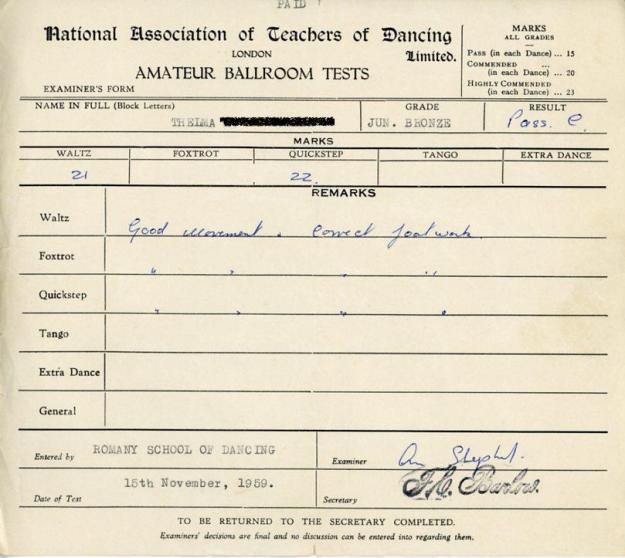 PAID
National Association of Teachers of Dancing
LONDON
Limited.
AMATEUR BALLROOM TESTS
EXAMINER'S FORM
MARKS
ALL GRADES
PASS (in each Dance) ... 15
COMMENDED ...
(in each Dance) ... 20
HIGHLY COMMENDED
(in each Dance) ... 23
NAME IN FULL (Block Letters)
GRADE
RESULT
THELMA
JUN. BRONZE
Pass. C.
MARKS
WALTZ
FOXTROT
QUICKSTEP
TANGO
EXTRA DANCE
21
22
REMARKS
Waltz
Good movement. Correct footwork.
Foxtrot
" " " "
Quickstep
" " " "
Tango
Extra Dance
General
Entered by ROMANY SCHOOL OF DANCING
Examiner
15th November, 1959.
Date of Test
Secretary F.C. Barlow.
TO BE RETURNED TO THE SECRETARY COMPLETED.
Examiners' decisions are final and no discussion can be entered into regarding them.